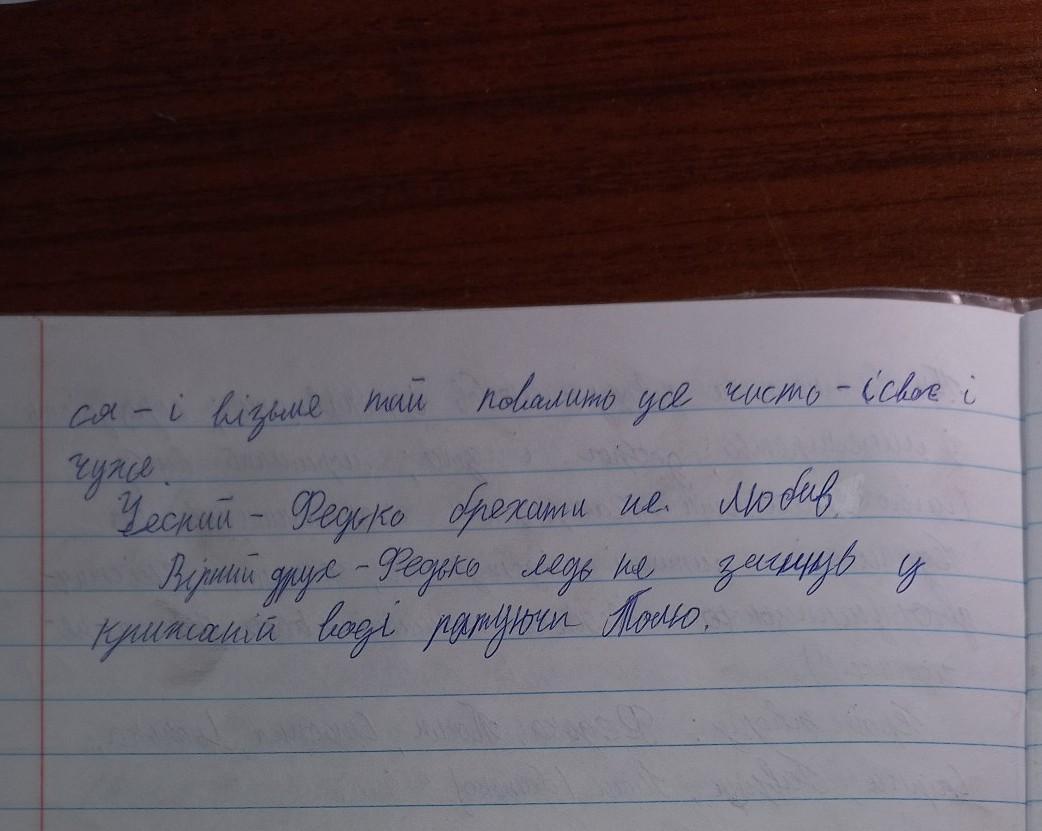 ся - і візьме тай повалить усе чисть - і своє і
чуже.
Чесний - Федько брехати не любив.
Вірний друг - Федько ледь не загинув у
крижаній воді рятуючи Толю.